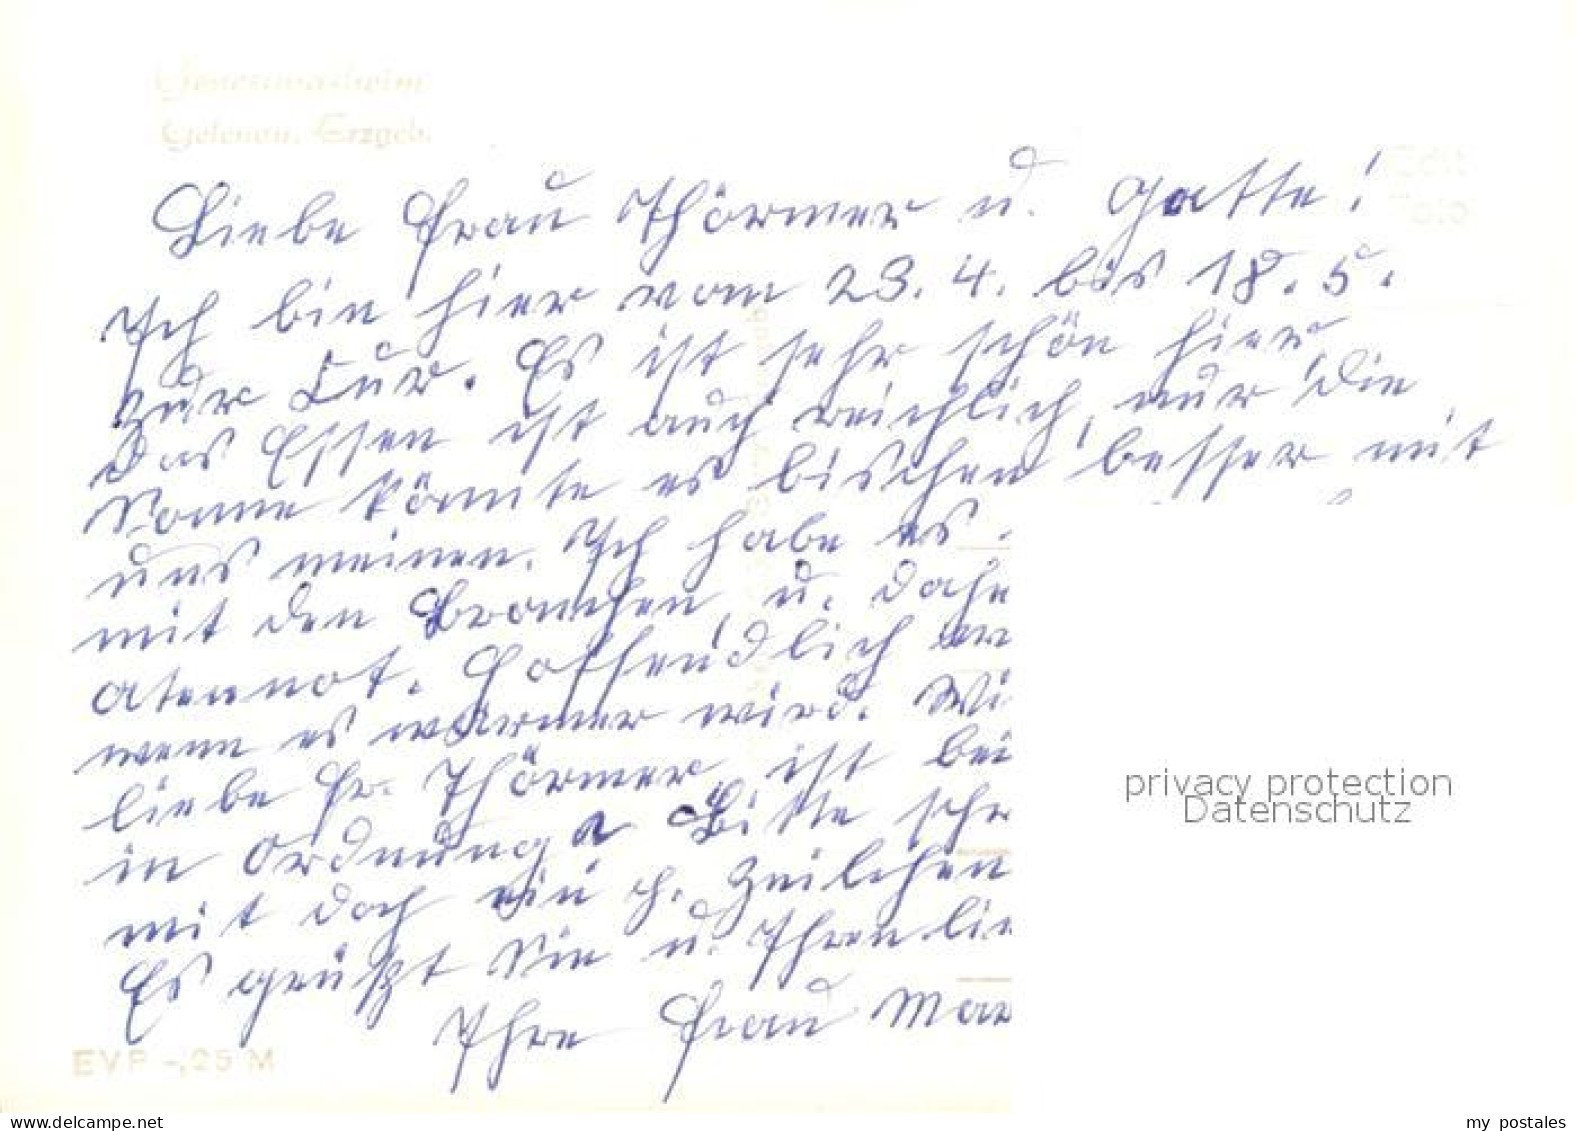 Genesungsheim
Gelenau, Erzgeb.
Liebe Frau Thörmer u. Gatte!
Ich bin hier vom 23. 4. bis 18. 5.
zur Kur. Es ist sehr schön hier,
das Essen ist auch reichlich, nur die
Sonne könnte es bischen besser mit
uns meinen. Ich habe es
mit den Bronchen, u. dahe
Atennot. Hoffendlich
wenn es wärmer wird. Wi
liebe Fr. Thörmer, ist bei
in Ordnung Bitte schr
mit doch ein Zeilchen
Es grüßt Sie u. Ihren lie
Ihre Frau Mar
EVP -,25 M
privacy protection
Datenschutz
www.delcampe.net
my_postales